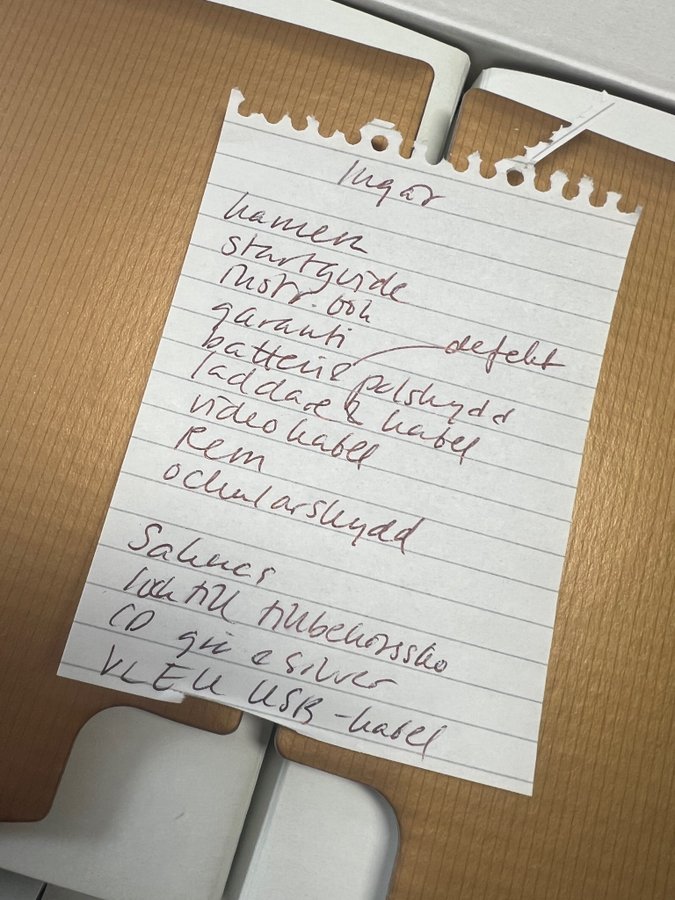 Ingår
kamera
startguide
instr.bok
garanti
batteri & polskydd defekt
laddare & kabel
videokabel
Rem
ockularskydd
Saknas
lock till tillbehörssko
CD grå & silver
USB-kabel